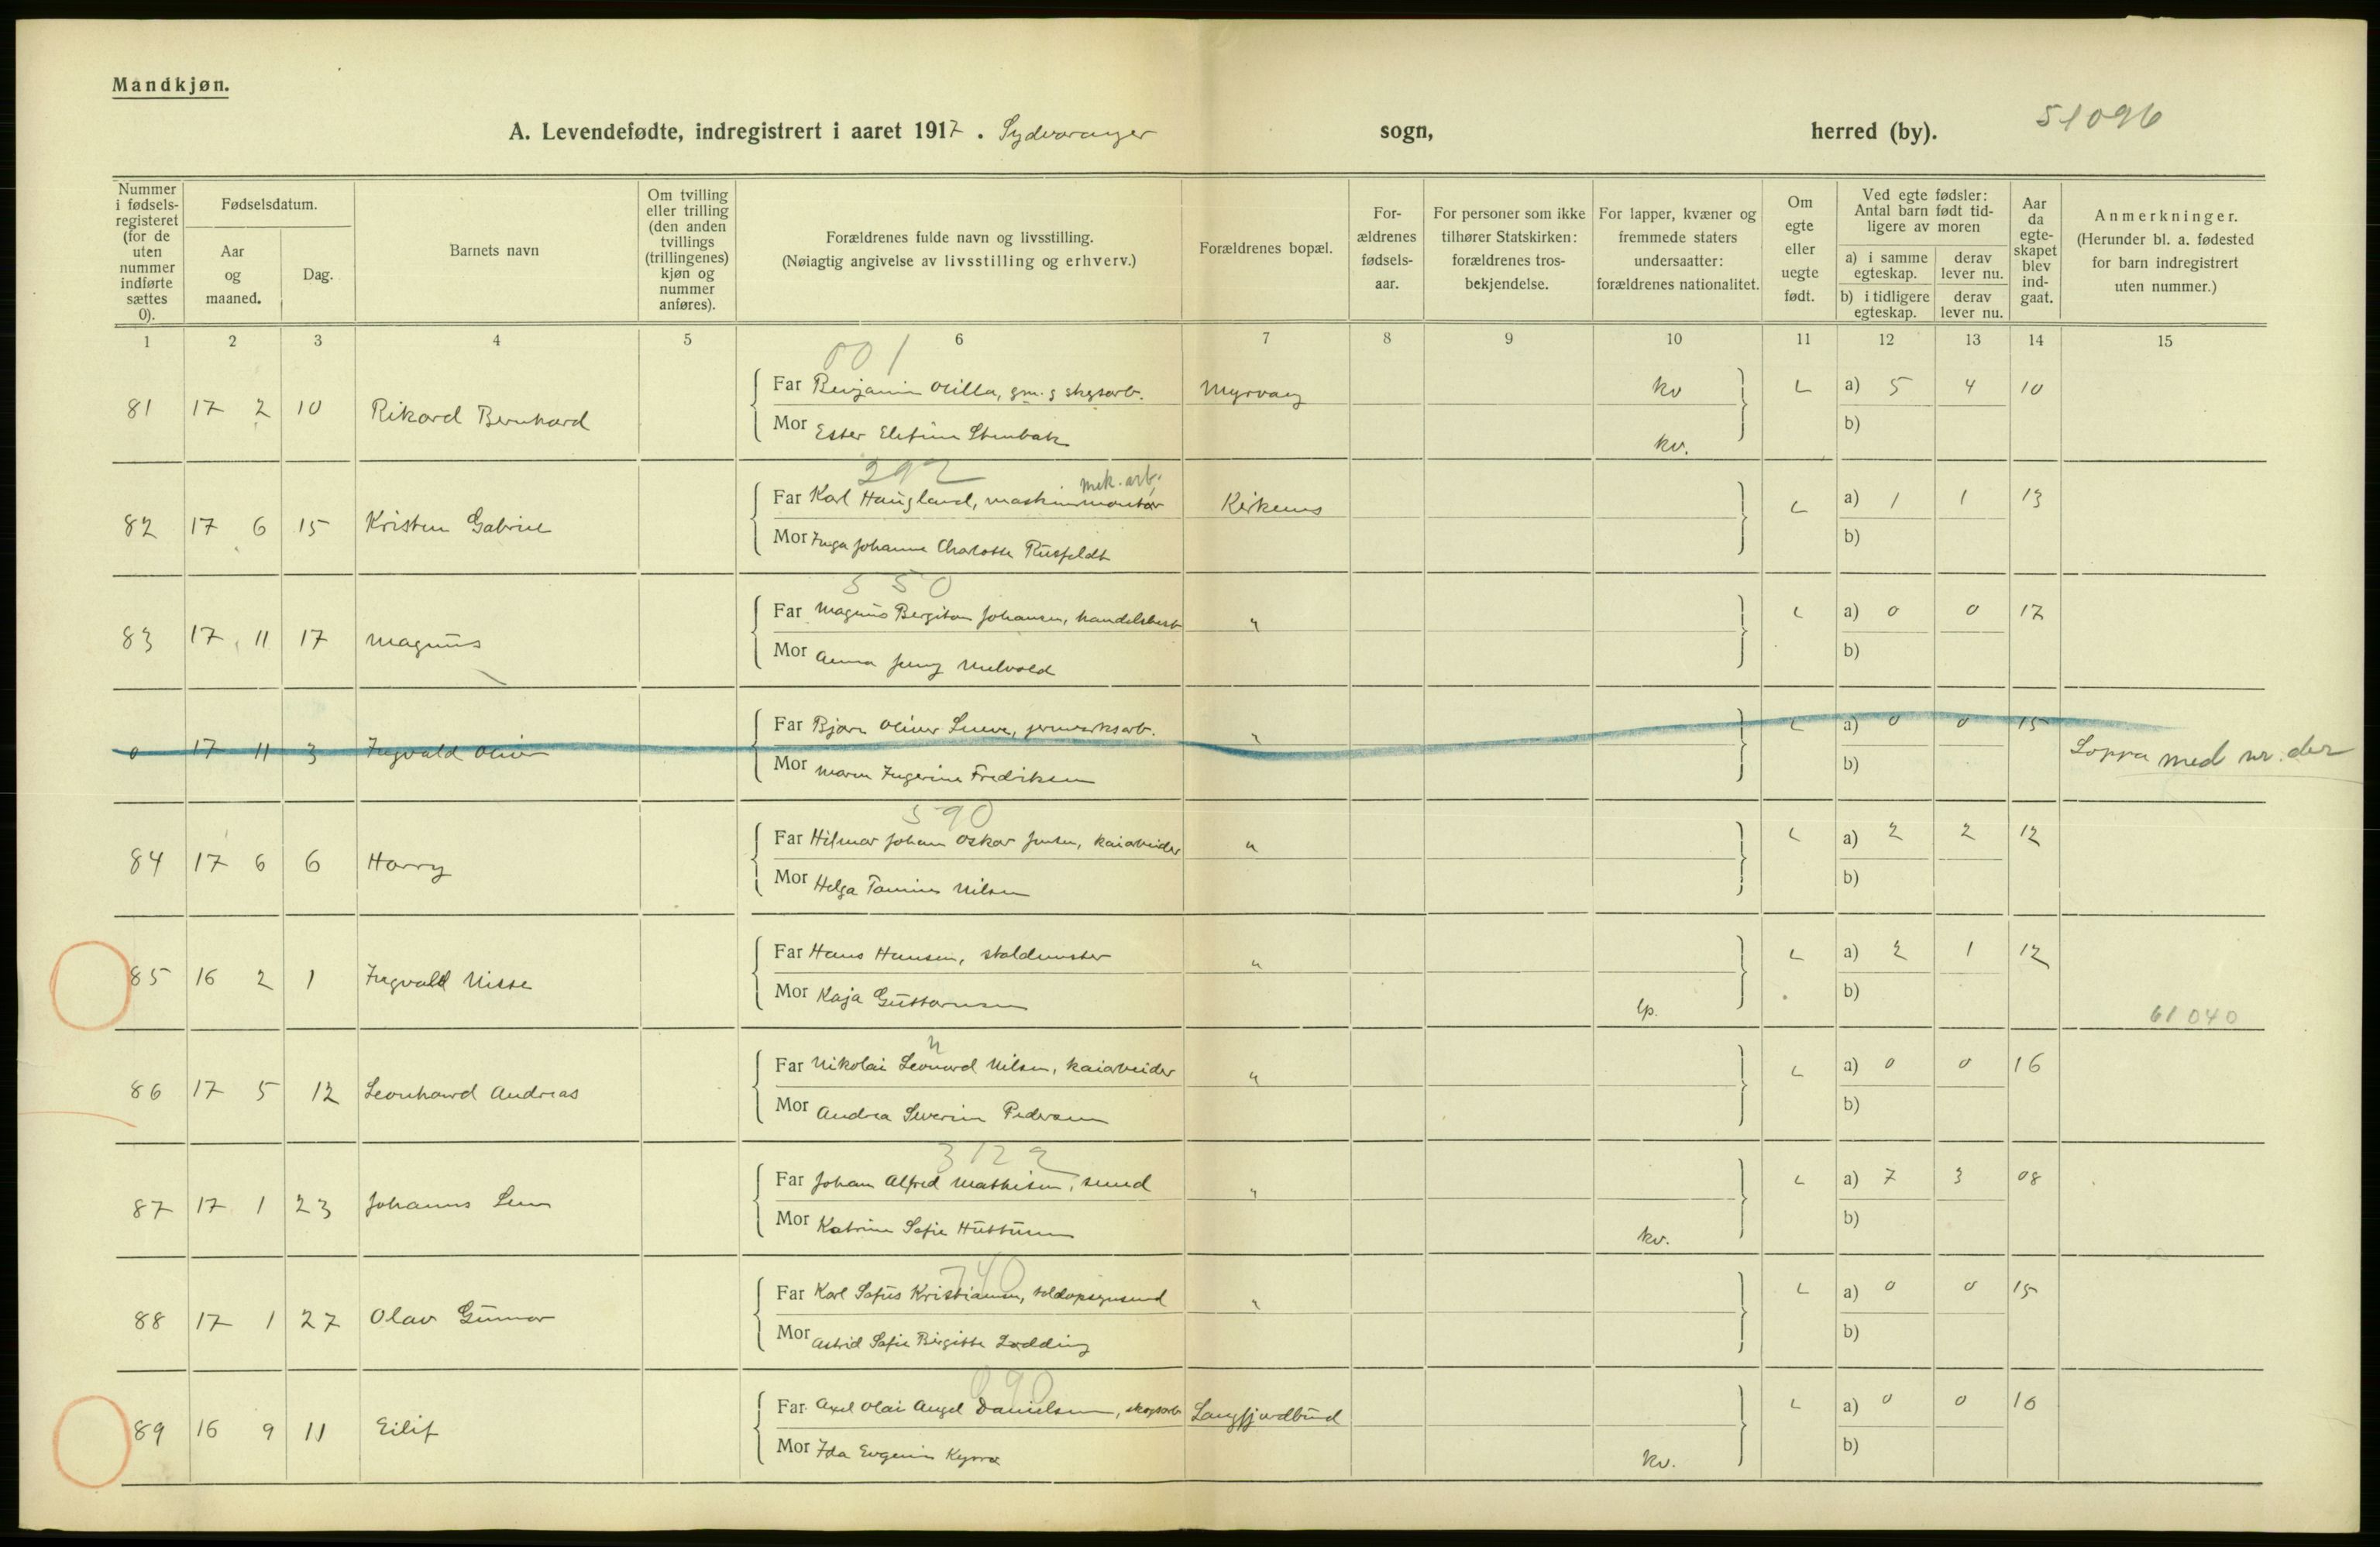 Mandkjøn.
A. Levendefødte, indregistrert i aaret 1917. Sydvaranger sogn, herred (by). 51096
Nummer i fødsels-registeret (for de uten nummer indførte sættes 0).
Fødselsdatum.
Aar og maaned.
Dag.
Barnets navn
Om tvilling eller trilling (den anden tvillings (trillingenes) kjøn og nummer anføres).
Forældrenes fulde navn og livsstilling.
(Nøiagtig angivelse av livsstilling og erhverv.)
Forældrenes bopæl.
For-ældrenes fødsels-aar.
For personer som ikke tilhører Statskirken: forældrenes tros-bekjendelse.
For lapper, kvæner og fremmede staters undersaatter: forældrenes nationalitet.
Om egte eller uegte født.
Ved egte fødsler: Antal barn født tid-ligere av moren
a) i samme egteskap. derav lever nu.
b) i tidligere egteskap. derav lever nu.
Aar da egte-skapet blev ind-gaat.
Anmerkninger.
(Herunder bl. a. fødested for barn indregistrert uten nummer.)
1 2 3 4 5 6 7 8 9 10 11 12 13 14 15
001
81 17 2 10 Rikard Bernhard Far Benjamin Hilla, gm. & skgsarb. Myrvang kv L a) 5 4 10
Mor Ester Elefine Stenbak kv. b)
292 mek. arb.
82 17 6 15 Kristen Gabriel Far Karl Haugland, maskinmontør Kirkenes L a) 1 1 13
Mor Inga Johanne Charlotte Rusfeldt b)
550
83 17 11 17 Magnus Far Magnus Bergiton Johansen, handelsbest " L a) 0 0 17
Mor Anna Jenny Melvold b)
0 17 11 3 Ingvald Oliver Far Bjarne Oliver Sneve, jernverksarb. " L a) 0 0 15
Mor Maren Ingerine Fredriksen b) Loppa med nr. der
590
84 17 6 6 Harry Far Hilmar Johan Oskar Jensen, kaiarbeider " L a) 2 2 12
Mor Helga Tomine Nilsen b)
85 16 2 1 Ingvald Nisse Far Hans Hansen, staldmester " L a) 2 1 12
Mor Kaja Gustavsen lp. b) 61040
"
86 17 5 12 Leonhard Andreas Far Nikolai Leonard Nilsen, kaiarbeider " L a) 0 0 16
Mor Andrea Severin Pedersen b)
3122
87 17 1 23 Johannes Far Johan Alfred Mathisen, smed " L a) 7 3 08
Mor Katrine Sofie Huttunen kv. b)
740
88 17 1 27 Olav Gunnar Far Karl Sofus Kristiansen, toldopsynsmd " L a) 0 0 15
Mor Astrid Sofie Birgitte Lødding b)
090
89 16 9 11 Eilif Far Axel Olai Angel Danielsen, skogsarb Langfjordbund L a) 0 0 16
Mor Ida Evgenie Kyrrø kv. b)